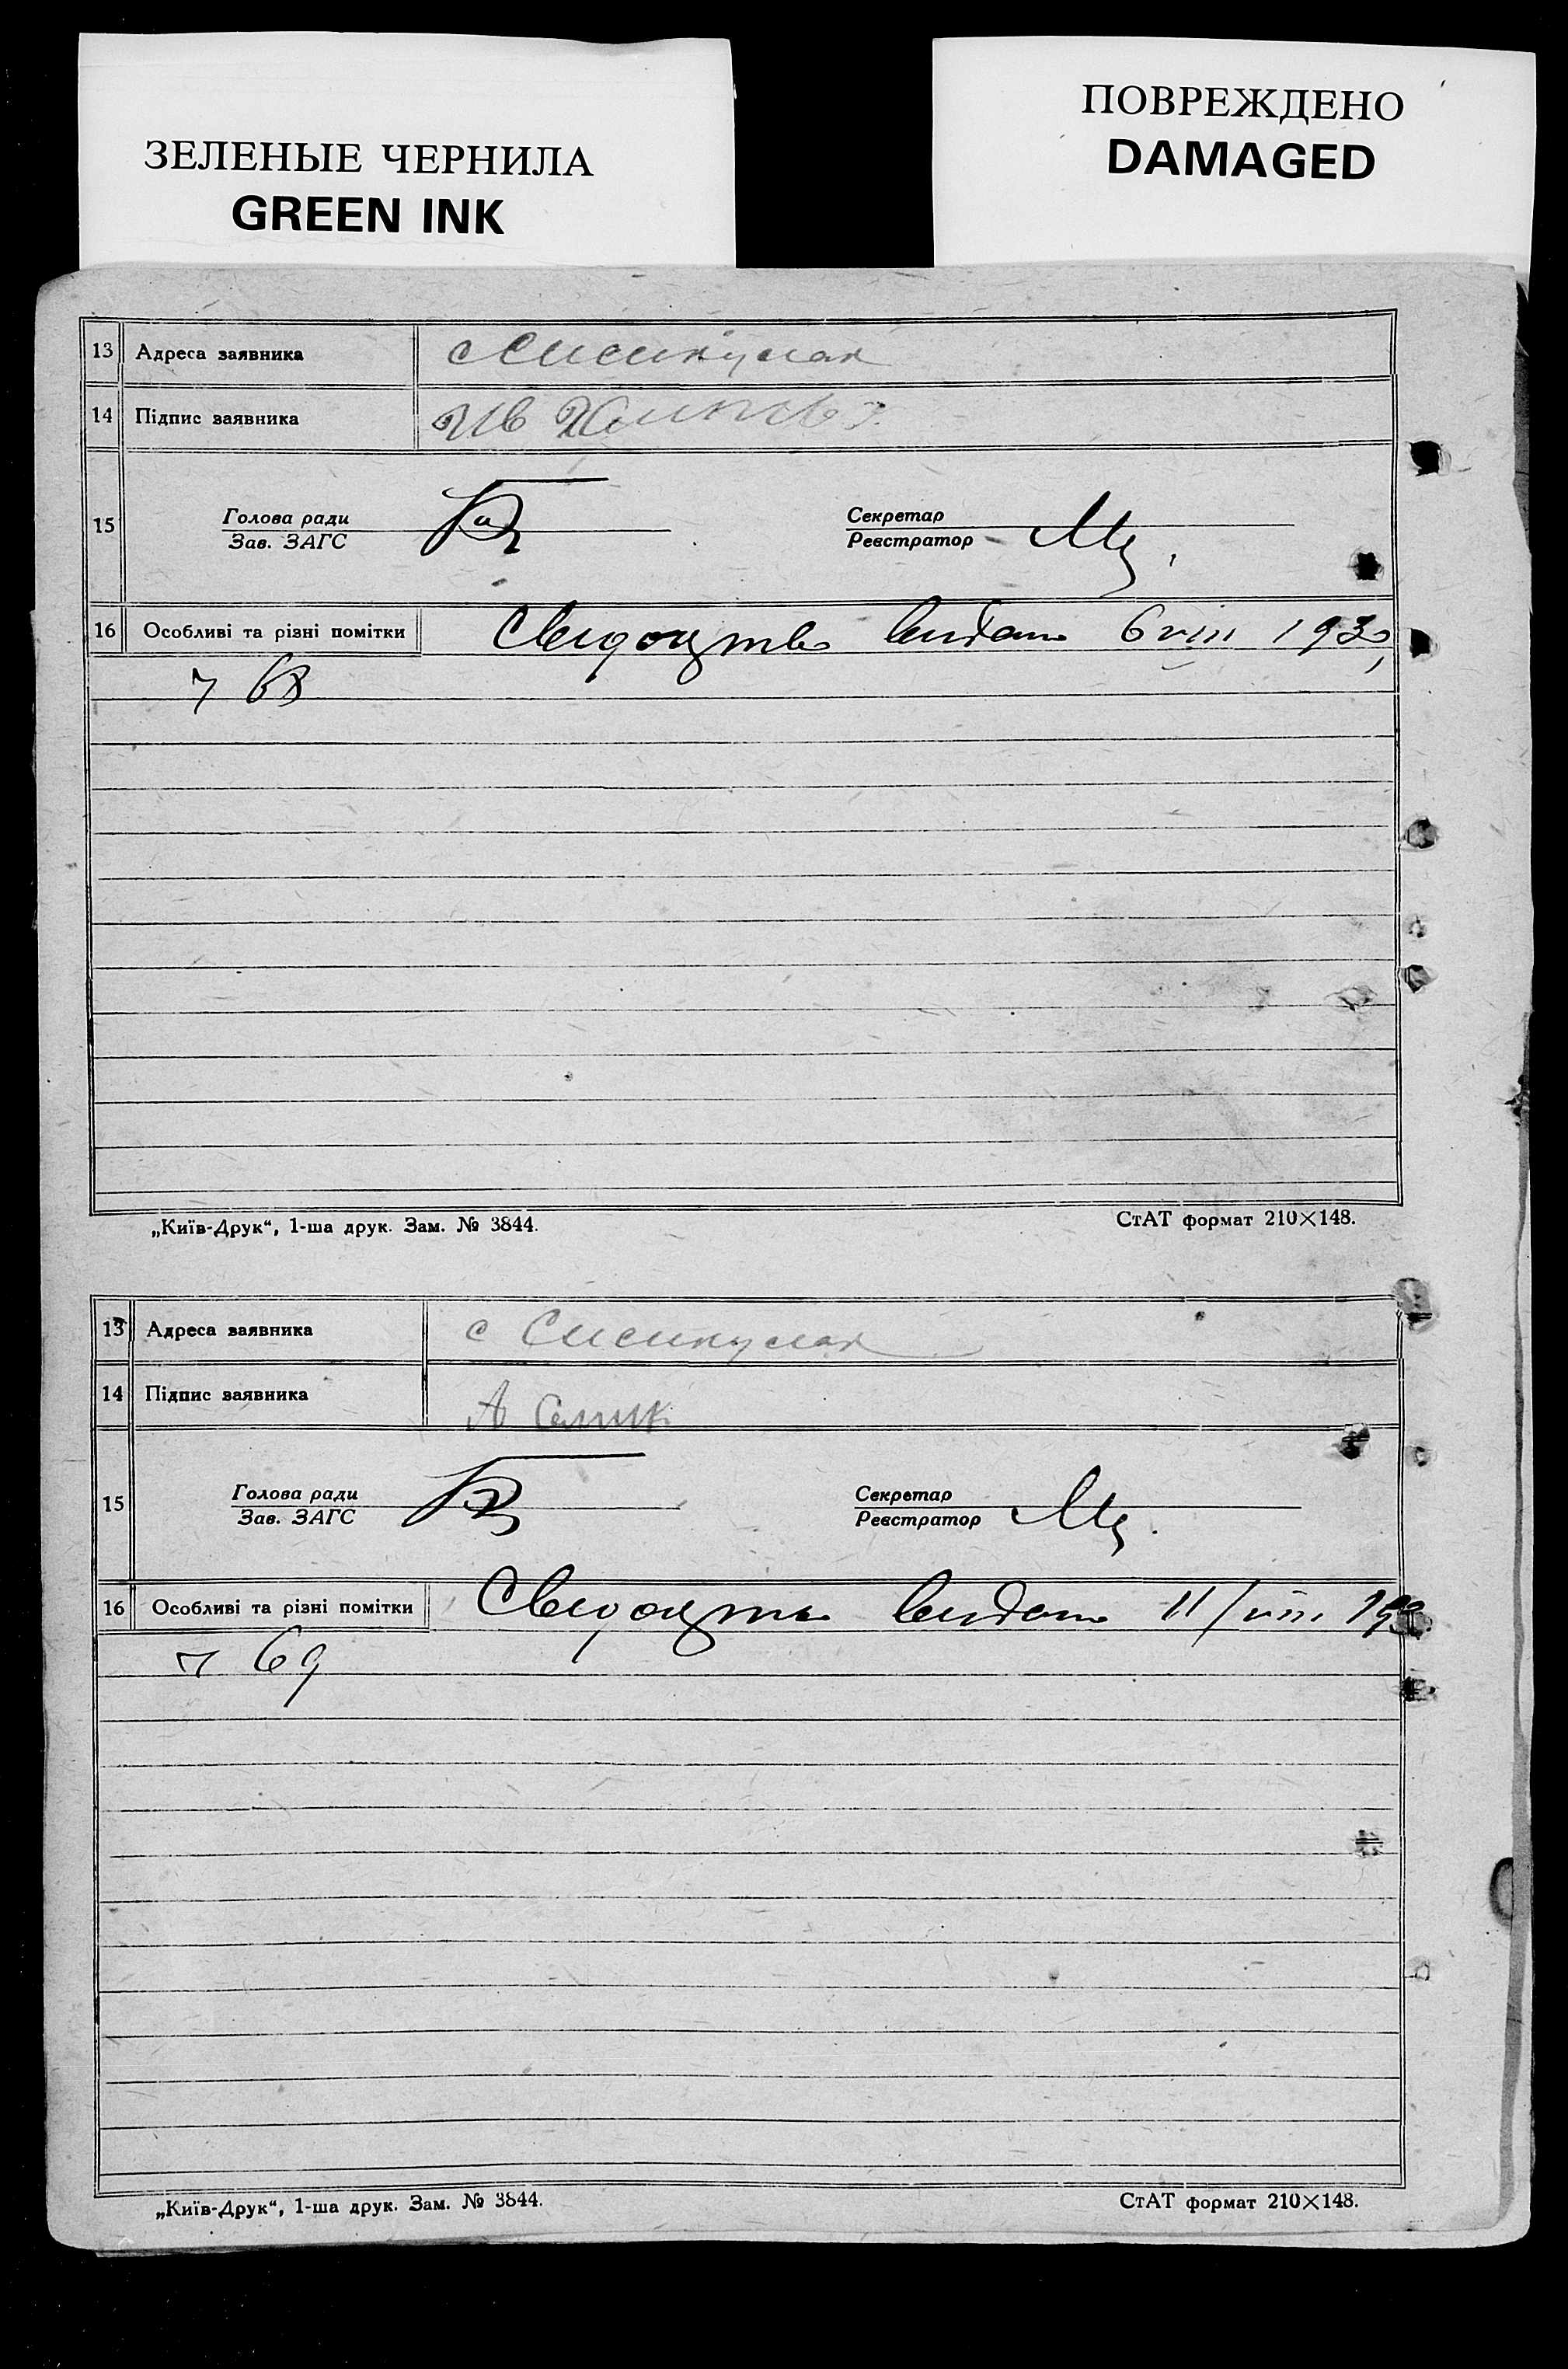 ЗЕЛЕНЫЕ ЧЕРНИЛА
GREEN INK
ПОВРЕЖДЕНО
DAMAGED
13 Адреса заявника с
14 Підпис заявника Ив
15 Голова ради
Зав. ЗАГС
Секретар
Реєстратор
16 Особливі та різні помітки Свидоцтво видано 6 VIII 193
ч 68
„Київ-Друк“, 1-ша друк. Зам. № 3844.
СтАТ формат 210×148.
13 Адреса заявника с
14 Підпис заявника А
15 Голова ради
Зав. ЗАГС
Секретар
Реєстратор
16 Особливі та різні помітки Свидоцтво видано 11/VIII 193
ч 69
„Київ-Друк“, 1-ша друк. Зам. № 3844.
СтАТ формат 210×148.